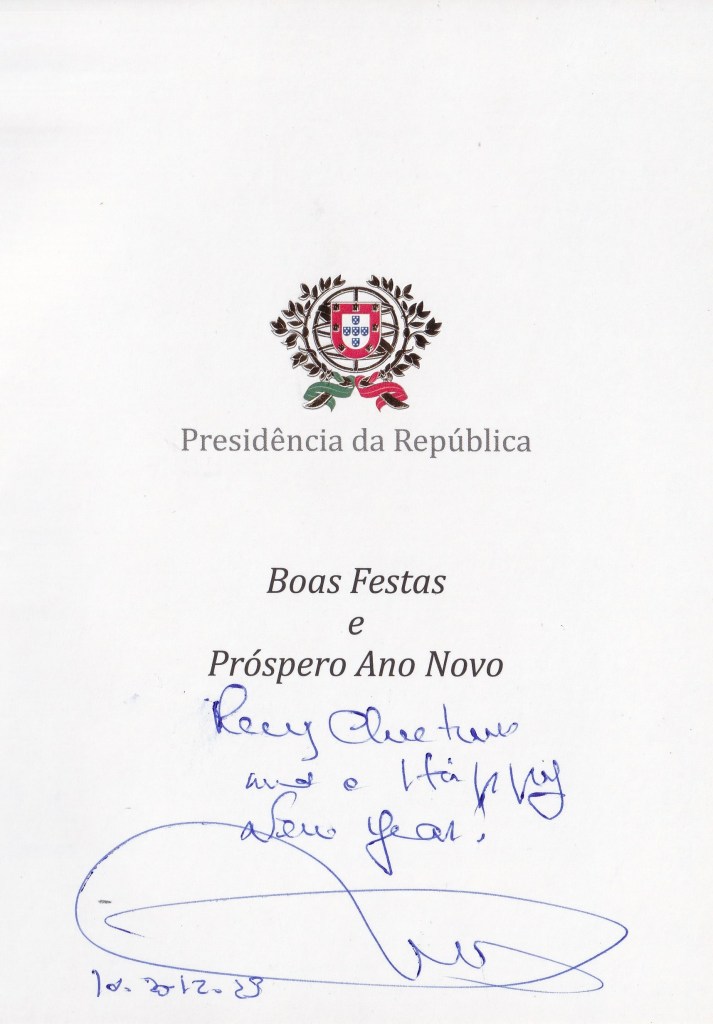 Presidência da República
Boas Festas
e
Próspero Ano Novo
Merry Christmas
and a Happy
New Year!